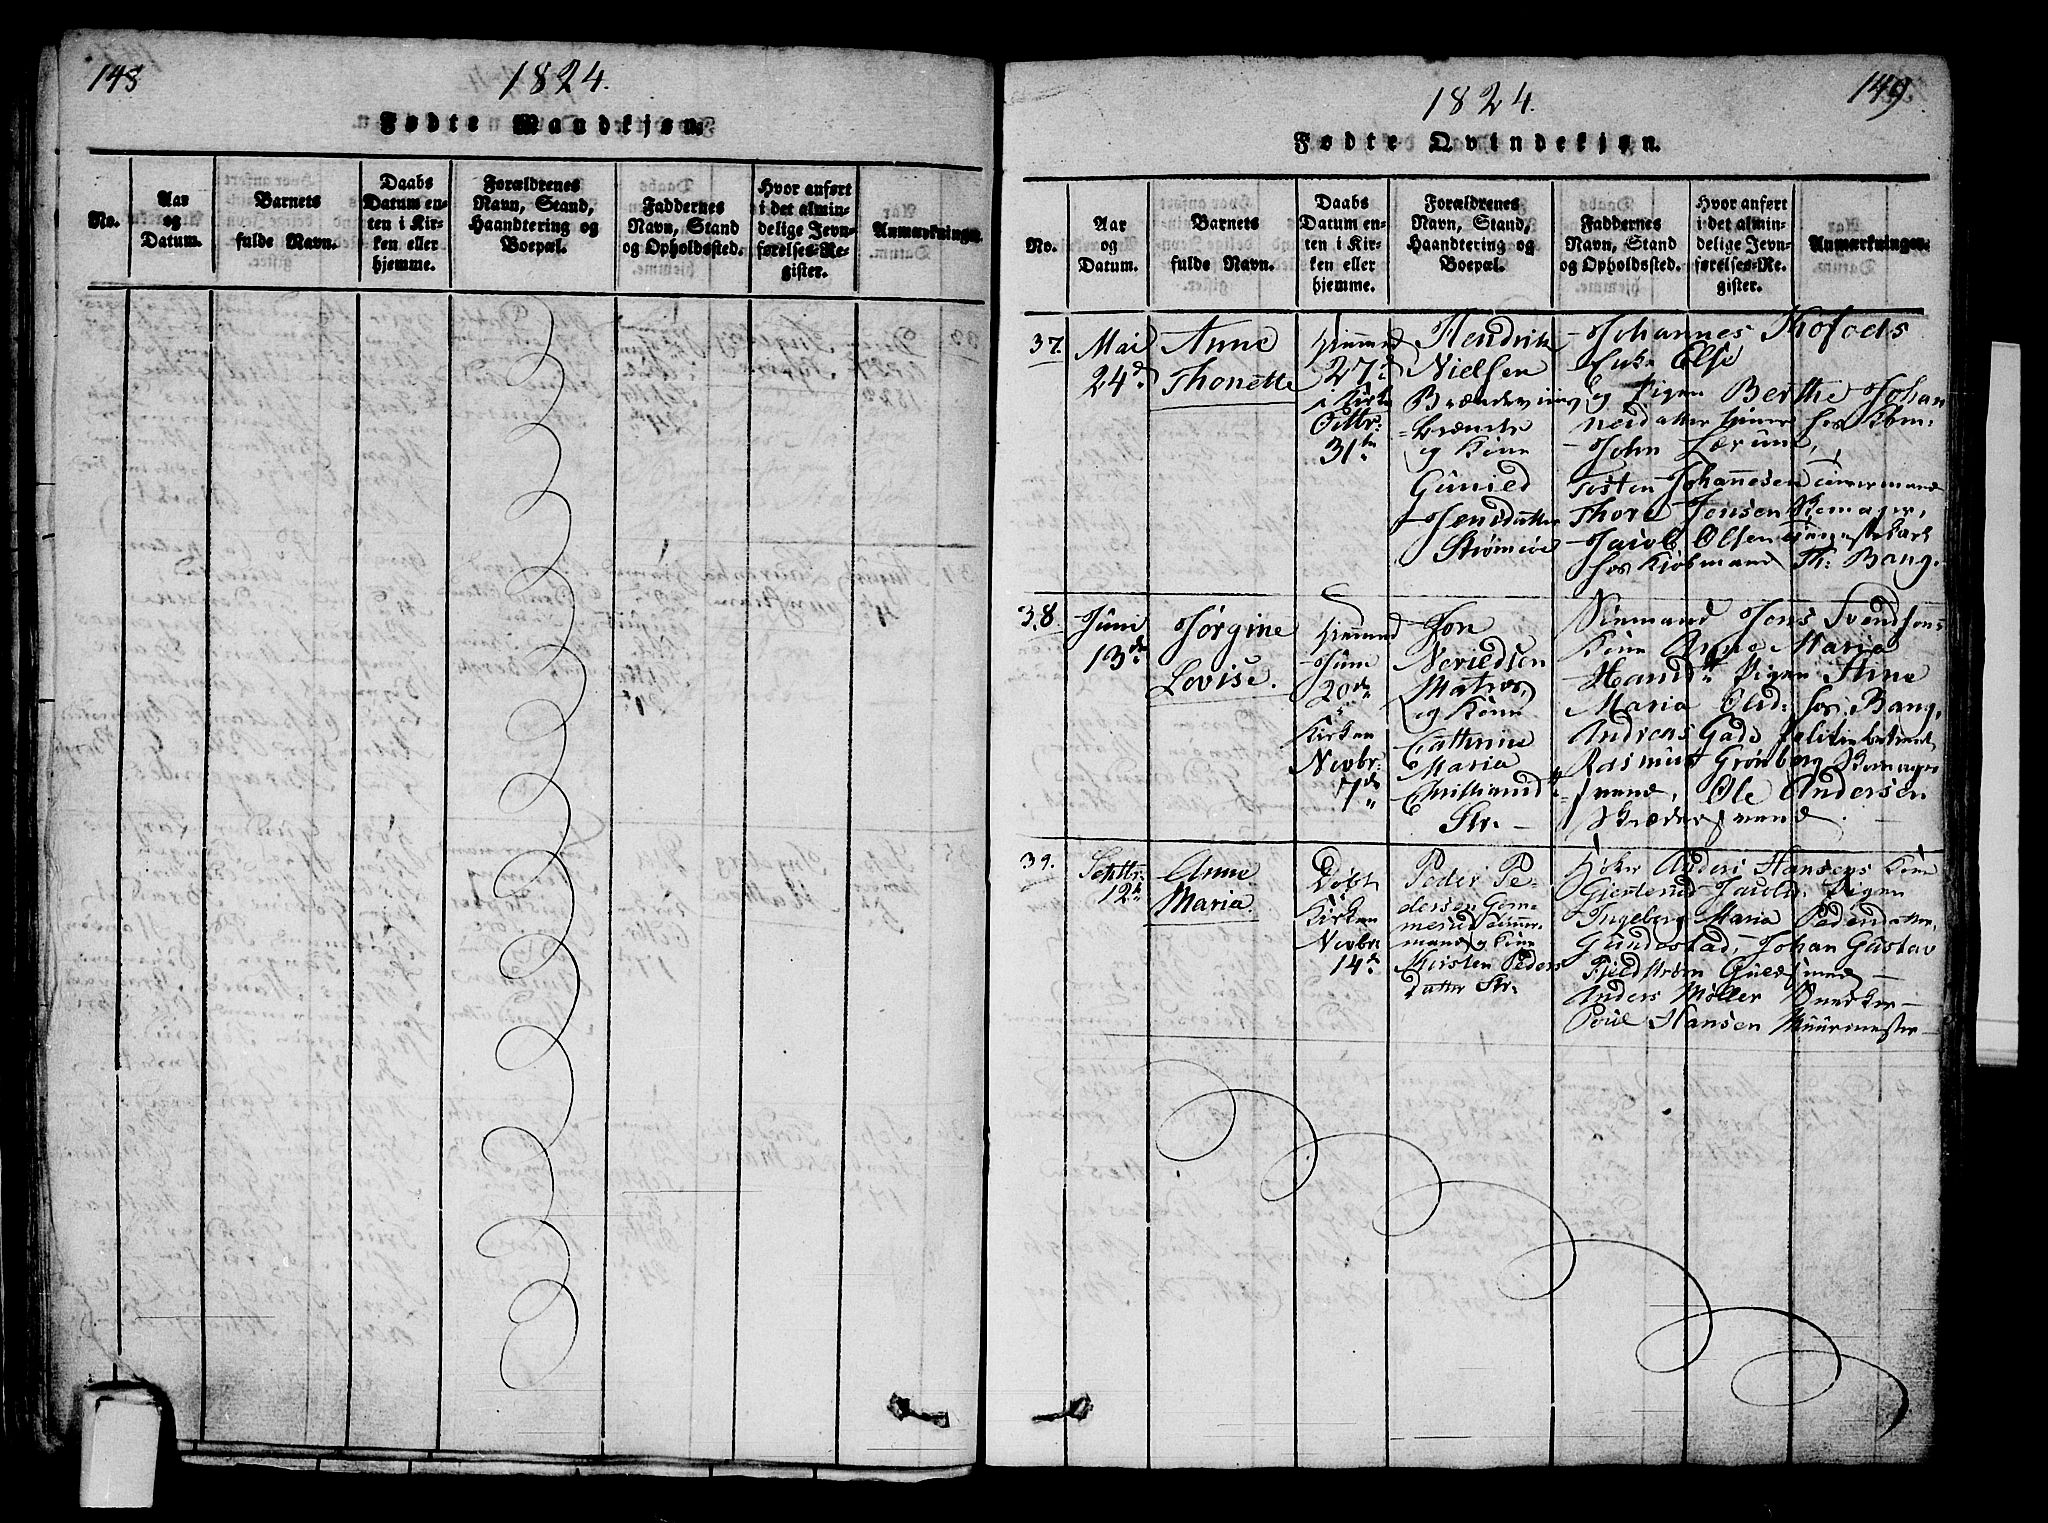 148
1824.
Fødte Mandkjøn.
No.
Aar
og
Datum.
Barnets
fulde Navn.
Daabs
Datum en-
ten i Kir-
ken eller
hjemme.
Forældrenes
Navn, Stand,
Haandtering og
Boepæl.
Faddernes
Navn, Stand
og Opholdssted.
Hvor anført
i det almin-
delige Jevn-
førelses-Re-
gister.
Anmærkninger.
149
1824.
Fødte Qvindekjøn.
No.
Aar
og
Datum.
Barnets
fulde Navn.
Daabs
Datum en-
ten i Kir-
ken eller
hjemme.
Forældrenes
Navn, Stand,
Haandtering og
Boepæl.
Faddernes
Navn, Stand
og Opholdssted.
Hvor anført
i det almin-
delige Jevn-
førelses-Re-
gister.
Anmærkninger.
37.
Mai
24de
Anne
Thonette
Hiemme
27de
i Kirke
Octbr:
31te
Hendrik
Nielsen
Brændeviins
brænder
og Kone
Guneld
Jensdatter
Strømsøe
Johannes Kofoeds
Enke Else
og Pigen Berthe Johan
nesdatter hos Kbm:
John Lærum,
Tosten Johannesen Tømmermand
Thore Jensen
Jacob Olsen Tienestekarl
hos Kiøbmand Th: Bang.
38
Juni
13de
Jørgine
Lovise.
Hiemme
Juni
20de
Kirken
Novbr:
7de
Jon
Neriedsen
Matros,
og Kone
Cathrine
Maria
Str.
Jens Svendsens
Kone Anne Maria
Pigen Stine
Maria Olsd: hos Bang,
Andreas Gade Politiebetient
Rasmus Grønberg Skomager
svend, Ole Andersen
Skrædersvend.
39.
Septbr.
12te
Anne
Maria.
Døbt
Kirken
Novbr
14de
Peder Pe-
dersen
Tømmer-
mand og Kone
Kirsten Peders
datter Str.
Høker Anders Hansens Kone
Giertrud Jacobd: Pigen
Ingeborg Maria Pedersdatter,
Gundestad, Johan Gustav
Fieldstrøm Guldsmed
Anders Møller Snedker
Poul Hansen Muurmester